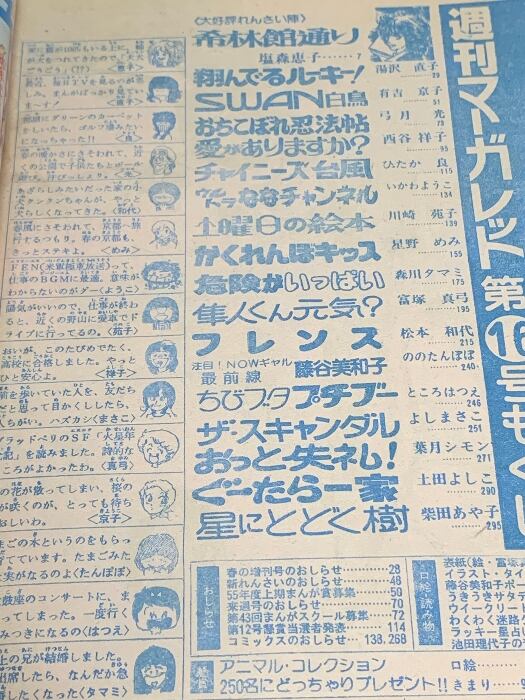 週刊マーガレット 第16号もく
〈大好評れんさい陣〉
希林館通り 塩森恵子……7
翔んでるルーキー! 湯沢直子 29
SWAN白鳥 有吉京子 51
おちこぼれ忍法帖 弓月光 73
愛がありますか? 西谷祥子 95
チャイニーズ台風 ひたか良 115
ウルトラななチャンネル いかわようこ 134
土曜日の絵本 川崎苑子 139
かくれんぼキッス 星野めみ 155
危険がいっぱい 森川タマミ 175
隼人くん元気!? 富塚真弓 195
フレンズ 松本和代 215
注目!NOWギャル最前線 藤谷美和子 ののたんぽぽ 240
ちびブタプチブー ところはつえ 246
ザ・スキャンダル よしまさこ 251
おっと失礼! 葉月シモン 271
ぐーたらー家 土田よしこ 290
星にとどく樹 柴田あや子 295
おしらせ
春の増刊号のおしらせ 28
新れんさいのおしらせ 48
55年度上期まんが賞募集 50
来週号のおしらせ 70
第43回まんがスクール募集 72
第12号懸賞当選者発表 114
コミックスのおしらせ 138,268
口絵・読み物
表紙(絵・富塚真
イラスト・タイ
藤谷美和子ポー
うきうきサタデ
ウイークリー
わくわく迷路ゲ
ラッキー星占い
池田理代子の
アニマル・コレクション 口絵
250名にどっちゃりプレゼント!! きまり
家に猫が100匹もいる上に、
毎日TVを見るのが楽
まんがばっかり見てい
まーす!
部屋にグリーンのカーペット
をしいたら、ゴルフ場みたい
になっちゃった!!
春の暖かさにさそわれて、近
くの公園で子供たちとボール
遊び。
あざらしみたいだった家の小
犬クンタンちゃんが、やっと
犬らしくなってきた。〈和代〉
春風にさそわれて、京都へ旅
行するつもり。春の京都も、
きっとステキよ。〈めみ〉
FEN(米軍極東放送)って、
仕事のBGMに最適。意味が
わからないのがグー〈ようこ〉
陽気がいいので、仕事が終わ
ると、近くの野山に愛車でド
ライブに行ってるの。〈苑子〉
おいが、このたびめでたく、
高校に合格しました。やっと
ひと安心よ。〈祥子〉
前を歩いていた人を、友だち
だと思って目かくししたら、
ちがい。ハズカシ〈まさこ〉
ブラッドベリのSF『火星年
代記』を読みました。詩的な
ところがよかったわ。〈真弓〉
の花が散ってしまい、桜の
が咲くのが、とっても待ち
おしいわ。〈京子〉
まごの木というのをもらっ
てています。たまごみた
な実がなるのよ〈たんぽぽ〉
鼓座のコンサートに、ま
ってしまった。一度行く
みつきになるの〈はつえ〉
上の兄が結婚しました。
出席したら、なんだか急
したくなった〈タマミ〉